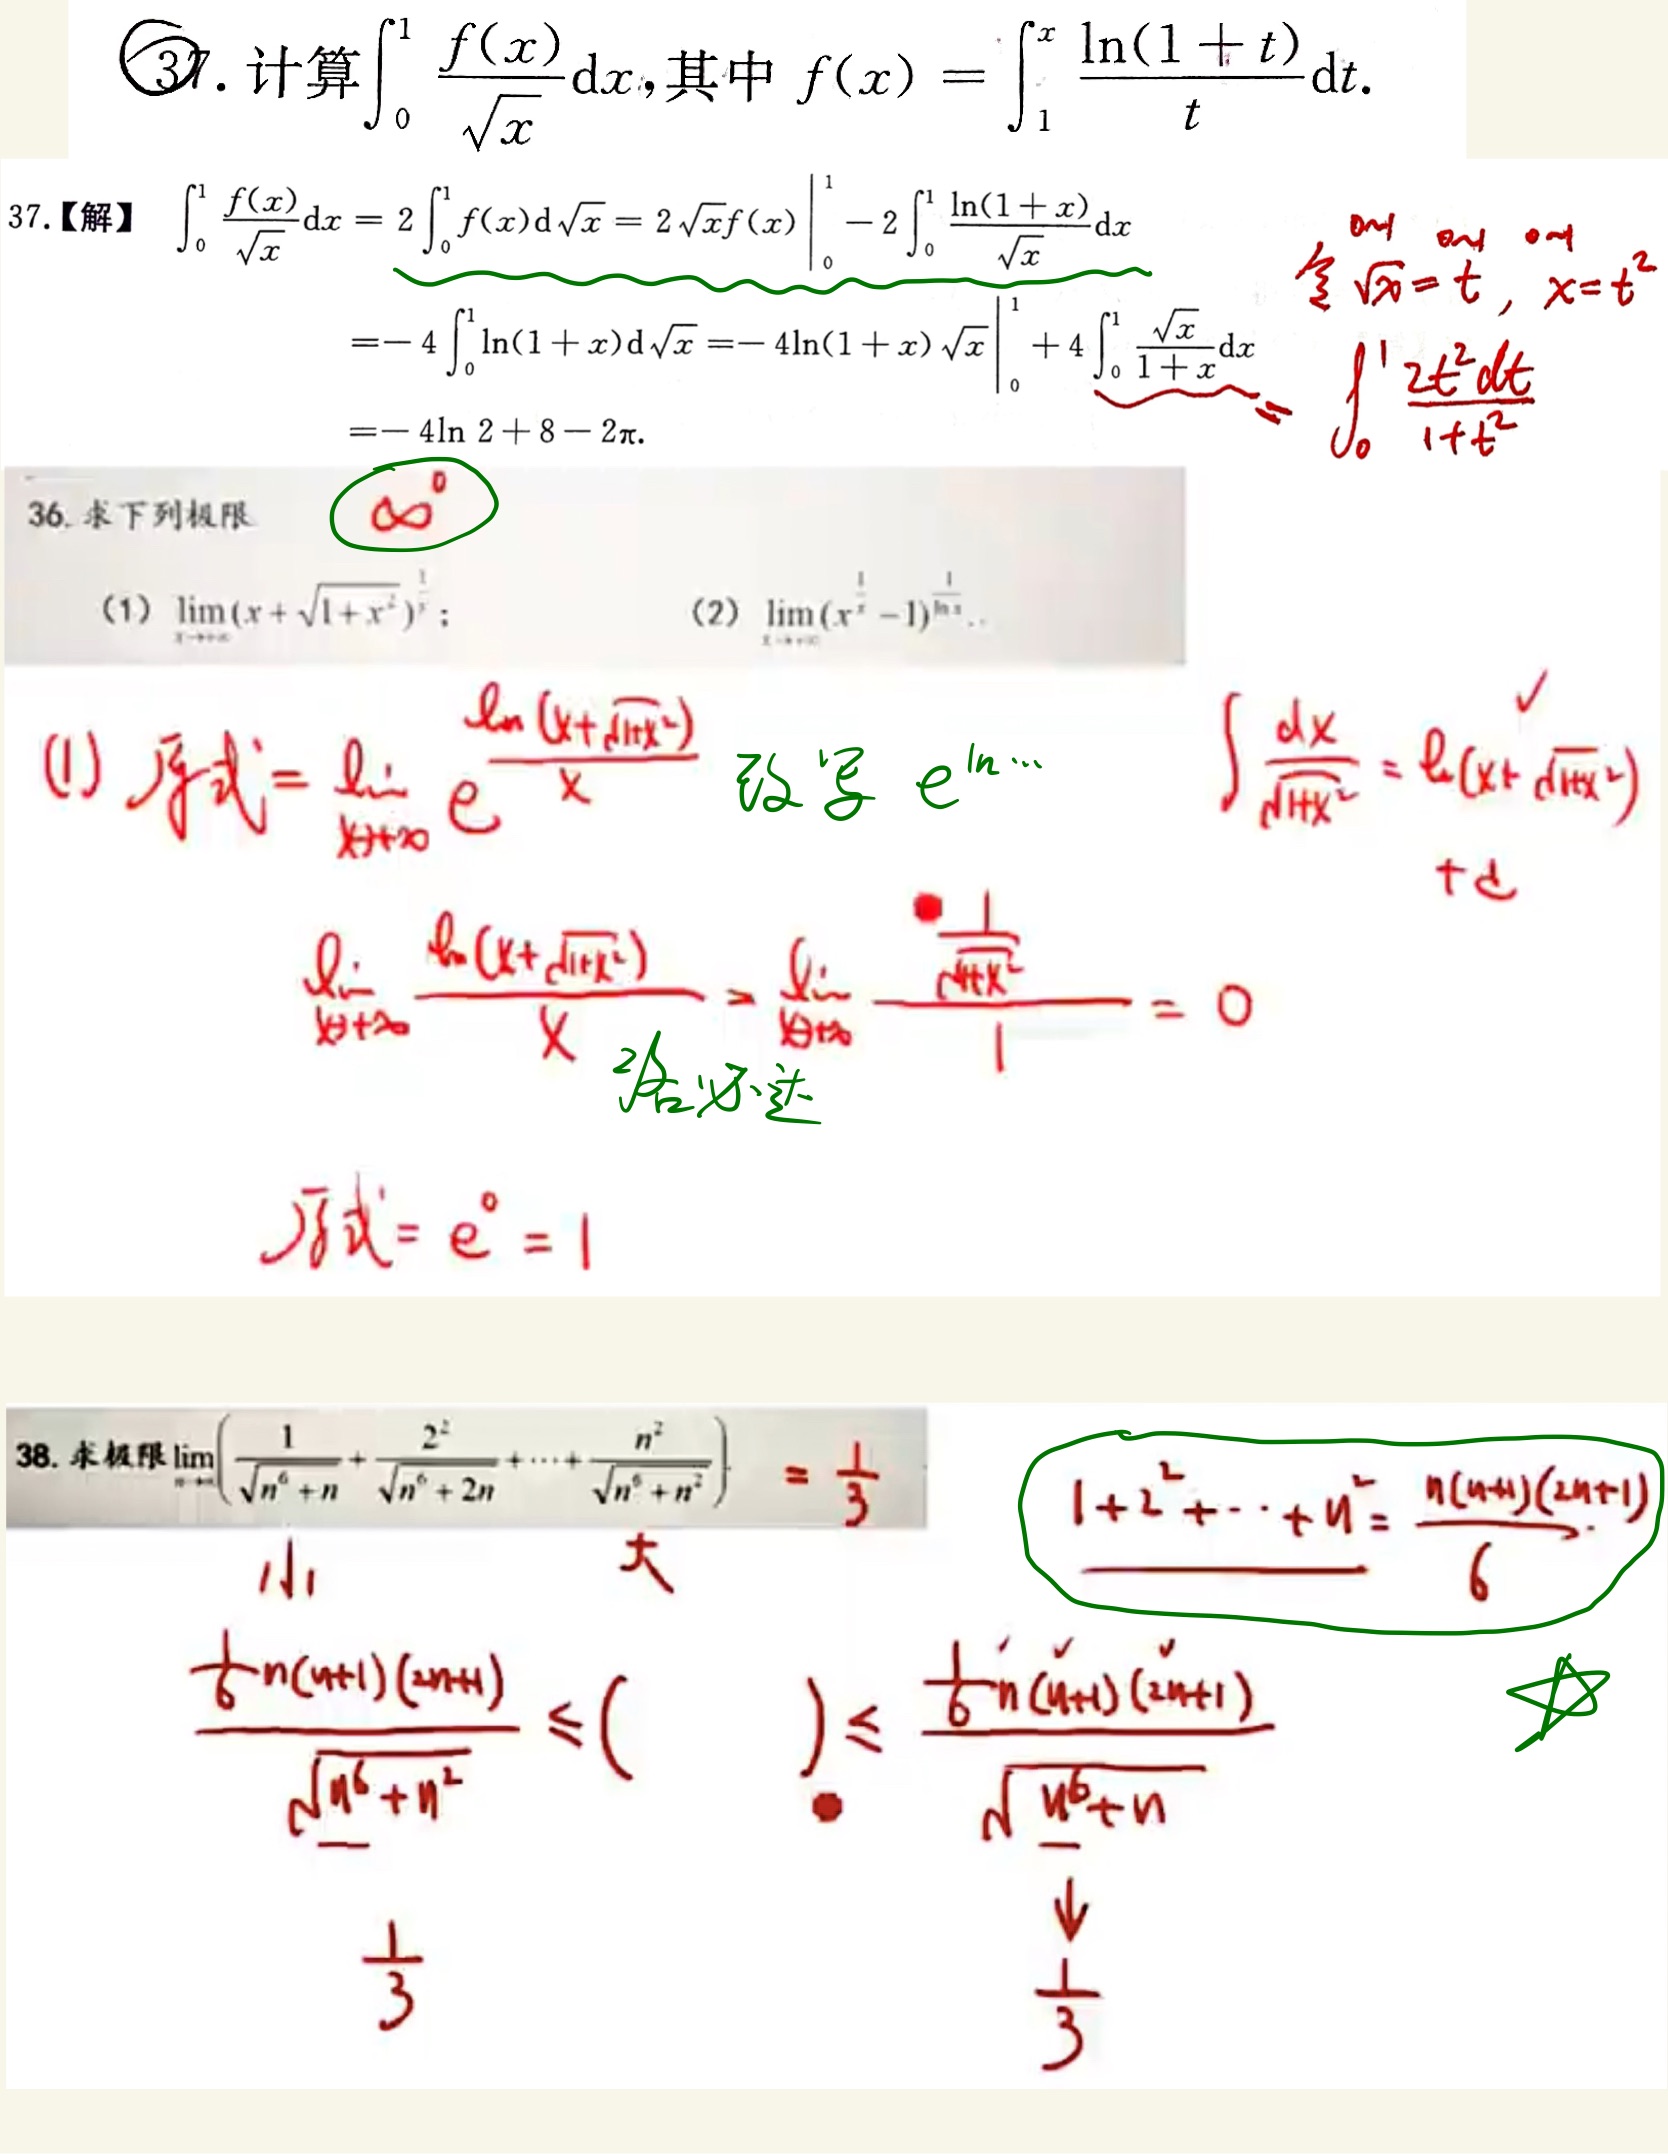 37. 计算∫₀¹ f(x)/√x dx,其中 f(x) = ∫₁ˣ ln(1+t)/t dt.
37.【解】 ∫₀¹ f(x)/√x dx = 2∫₀¹ f(x)d√x = 2√x f(x)|₀¹ − 2∫₀¹ ln(1+x)/√x dx
令 √x = t, x = t²
0~1 0~1 0~1
=− 4∫₀¹ ln(1+x)d√x =− 4ln(1+x)√x|₀¹ + 4∫₀¹ √x/(1+x) dx
= ∫₀¹ 2t²dt/(1+t²)
=− 4ln 2 + 8 − 2π.
36. 求下列极限 ∞⁰
(1) lim_{x→+∞} (x + √(1+x²))^{1/x} ; (2) lim_{x→+∞} (x^{1/x} − 1)^{1/ln x}..
(1) 原式 = lim_{x→+∞} e^{ln(x+√(1+x²))/x} 改写 e^{ln…}
∫ dx/√(1+x²) = ln(x+√(1+x²))
+c
lim_{x→+∞} ln(x+√(1+x²))/x = lim_{x→+∞} (1/√(1+x²))/1 = 0
洛必达
原式 = e⁰ = 1
38. 求极限 lim_{n→∞} (1/√(n⁶+n) + 2²/√(n⁶+2n) + ⋯ + n²/√(n⁶+n²)) = 1/3
小 大
1+2²+⋯+n² = n(n+1)(2n+1)/6
1/6 n(n+1)(2n+1)/√(n⁶+n²) ≤ ( ) ≤ 1/6 n(n+1)(2n+1)/√(n⁶+n)
↓
1/3 1/3